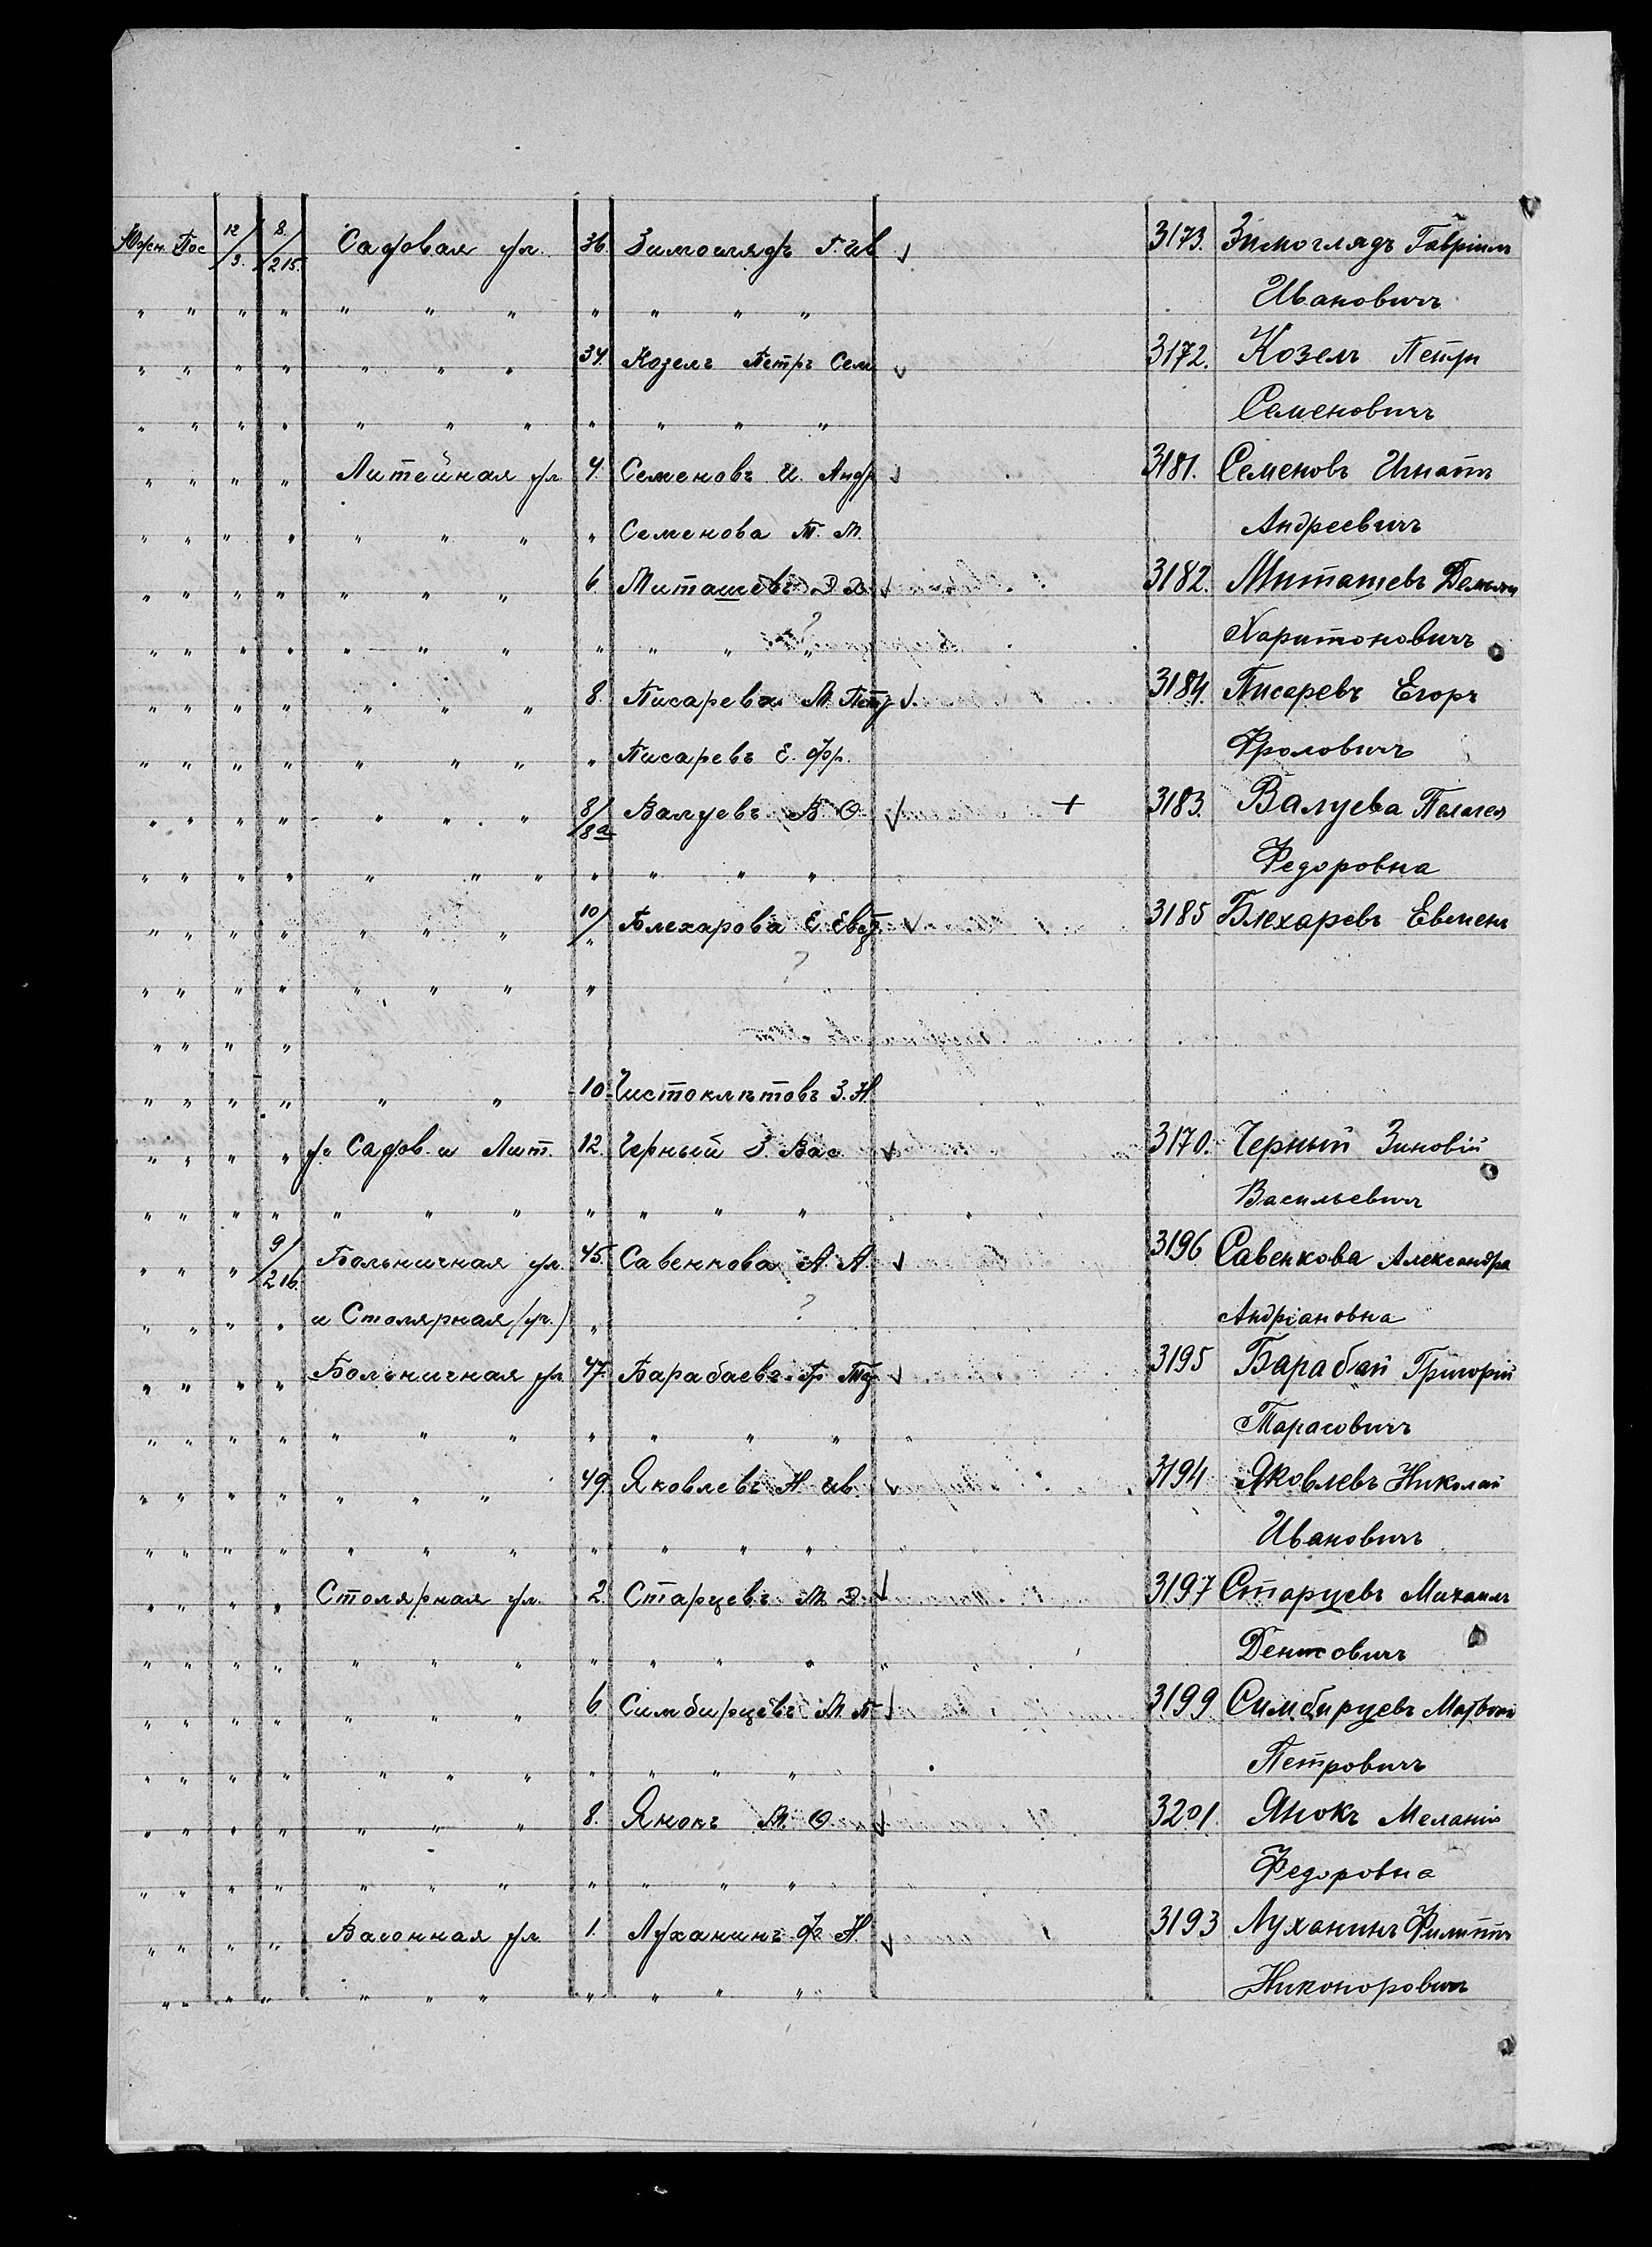 Южн. Пос 12/9. 8/215. Садовая ул. 36. Зимоглядъ Г. Ив 3173. Зимоглядъ Гавріилъ
" " " " " " " " " " " Ивановичъ
" " " " " " " 34. Козелъ Петръ Сем 3172. Козелъ Петръ
" " " " " " " " " " " Семеновичъ
" " " " Литейная ул. 4. Семеновъ И. Андр 3181. Семеновъ Игнатъ
" " " " " " " " Семенова М. М. Андреевичъ
" " " " " " " 6. Миташевъ Д Х 3182. Миташевъ Демьян
" " " " " " " " " " " ? Харитоновичъ
" " " " " " " 8. Писарева М. Петр 3184. Писаревъ Егоръ
" " " " " " " " Писаревъ Е. Фр. Фроловичъ
" " " " " " " 8/8а Валуевъ В. О. + 3183. Валуева Пелагея
" " " " " " " " " " " Федоровна
" " " " " " " 10/" Блехарова Е. Евд. 3185 Блехаревъ Евмен
" " " " " " " " ?
" " " "
" " " " " " 10. Чистоклѣтовъ З. Н.
" " " " у. Садов. и Лит. 12. Черный З. Вас 3170. Черный Зиновій
" " " " " " " " " " " Васильевичъ
" " " 9/216. Больничная ул. 45. Савенкова А. А. 3196 Савенкова Александра
" " " " и Столярная (уг.) " ? Андріановна
" " " " Больничная ул 47. Барабаевъ Гр Тар 3195 Барабай Григорій
" " " " " " " " " " " Тарасовичъ
" " " " " " " 49. Яковлевъ Н. Ив. 3194 Яковлевъ Николай
" " " " " " " " " " " Ивановичъ
" " " " Столярная ул. 2. Старцевъ М. Д. 3197 Старцевъ Михаилъ
" " " " " " " " " " " Денисовичъ
" " " " " " " 6. Симбирцевъ М. П. 3199 Симбирцевъ Матвѣй
" " " " " " " " " " " Петровичъ
" " " " " " " 8. Янокъ М. О. 3201 Янокъ Меланія
" " " " " " " " " " " Федоровна
" " " " Вагонная ул 1. Луханинъ Ф. Н. 3193 Луханинъ Филиппъ
" " " " " " " " " " " Никоноровичъ